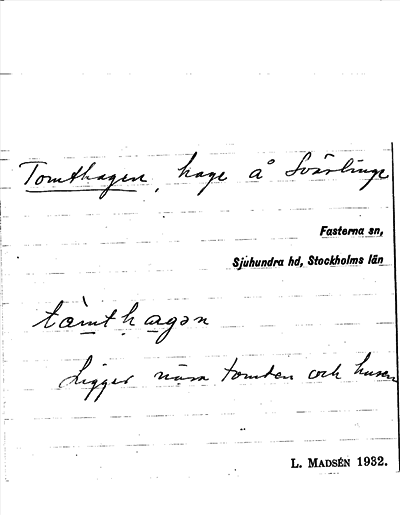 Tomthagen, hage å Svärlinge
Fasterna sn,
Sjuhundra hd, Stockholms län
tὰmthagən
Ligger nära tomten och husen
L. MADSÉN 1932.